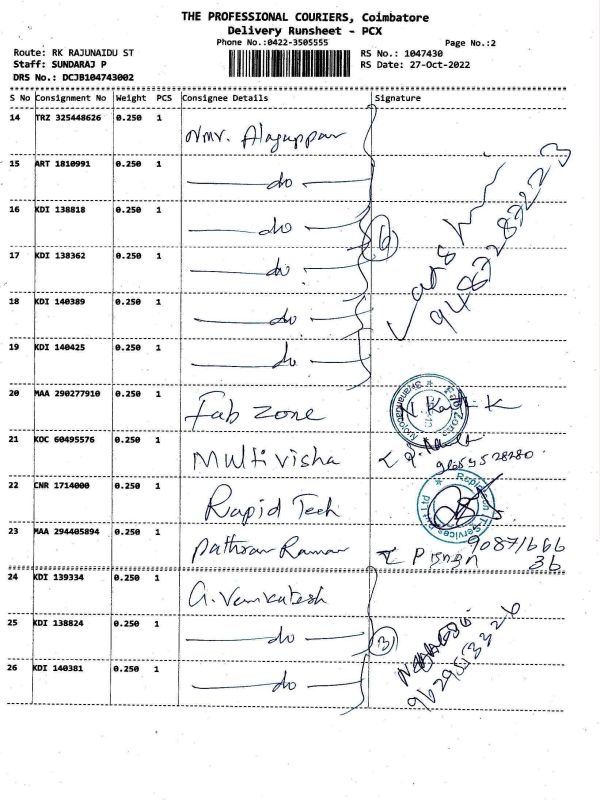 THE PROFESSIONAL COURIERS, Coimbatore
Delivery Runsheet - PCX
Phone No.:0422-3505555 Page No.:2
Route: RK RAJUNAIDU ST RS No.: 1047430
Staff: SUNDARAJ P RS Date: 27-Oct-2022
DRS No.: DCJB104743002
S No Consignment No Weight PCS Consignee Details Signature
14 TRZ 325448626 0.250 1 Alaguppan
15 ART 1810991 0.250 1 do
16 KDI 138818 0.250 1 do 6
17 KDI 138362 0.250 1 do
18 KDI 140389 0.250 1 do
19 KDI 140425 0.250 1 do
20 MAA 290277910 0.250 1 Fab Zone
21 KOC 60495576 0.250 1 Multi visha
22 CNR 1714000 0.250 1 Rapid Tech
23 MAA 294405894 0.250 1 Raman
24 KDI 139334 0.250 1 G. Venkatesh
25 KDI 138824 0.250 1 do 3
26 KDI 140381 0.250 1 do